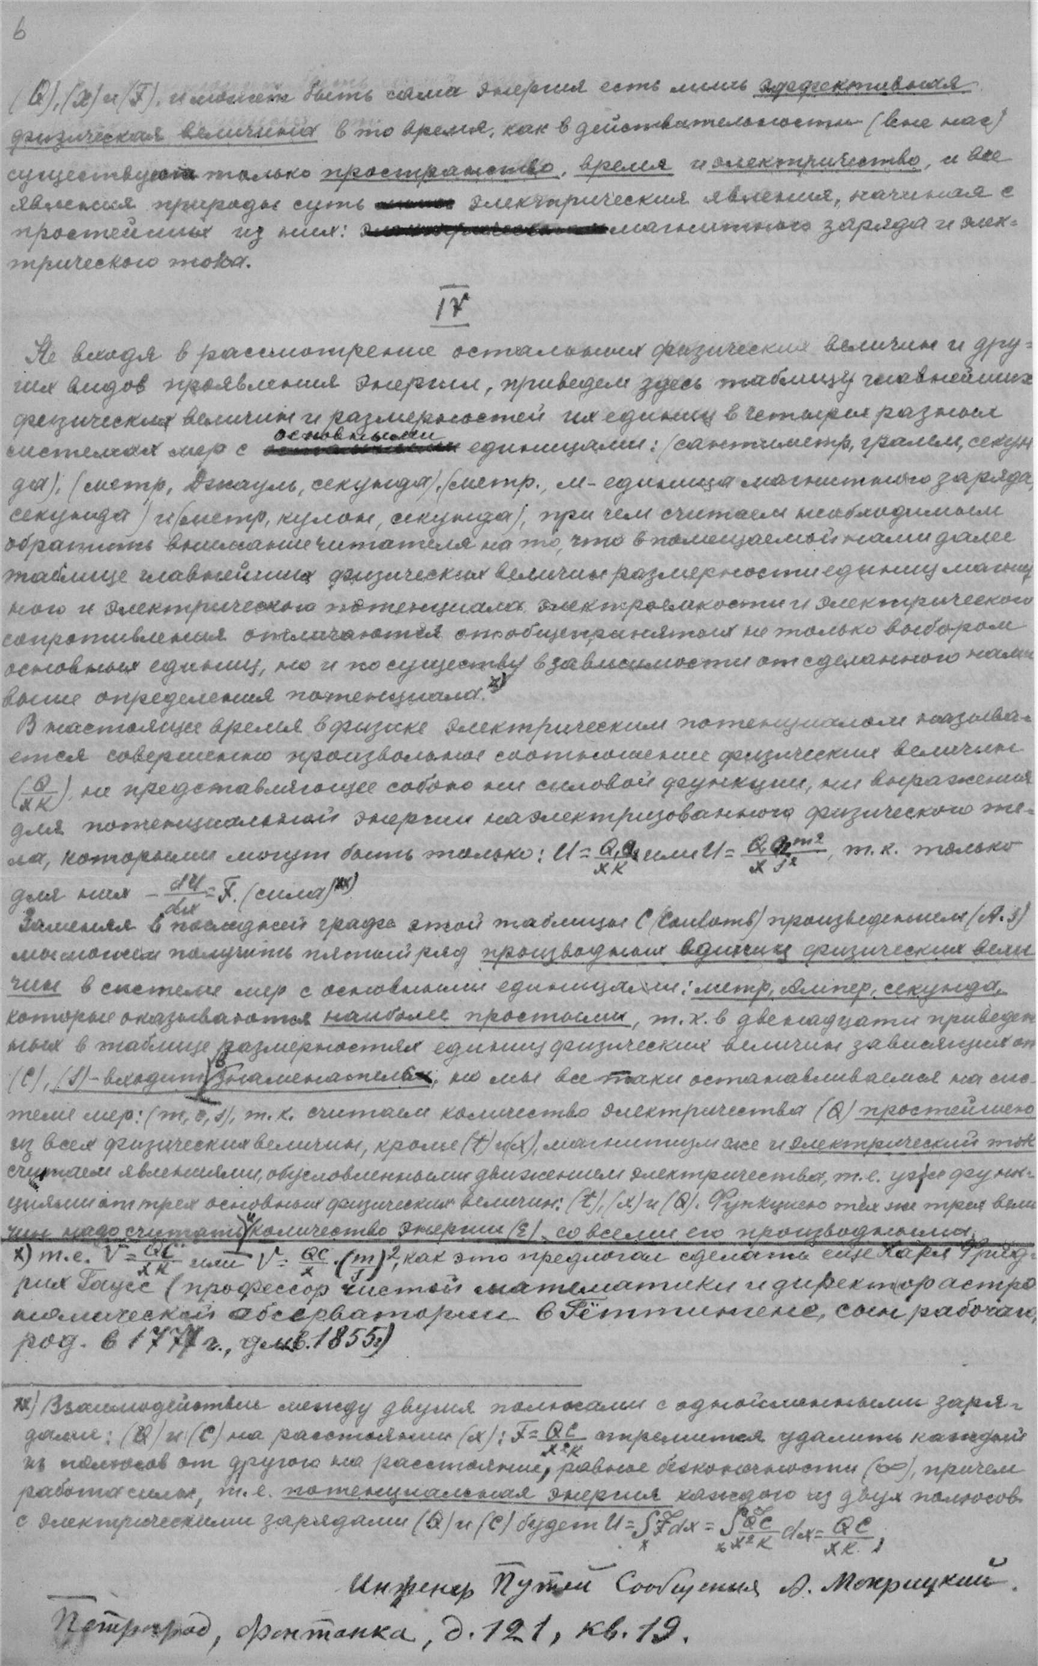 6
(Q), (x) и (F), и может быть сама энергия есть лишь эффективная
физическая величина в то время, как в действительности (вне нас)
существуют только пространство, время и электричество, и все
явления природы суть электрическия явления, начиная с
простейших из них: магнитного заряда и элек-
трического тока.
IV
Не входя в рассмотрение остальных физических величин и дру-
гих видов проявления энергии, приведем здесь таблицу главнейших
физических величин и размерностей их единиц в четырех разных
системах мер с основными единицами: (сантиметр, грамм, секун
да), (метр, Джауль, секунда), (метр, м-единица магнитного заряда,
секунда) и (метр, кулон, секунда), при чем считаем необходимым
обратить внимание читателя на то, что в помещаемой нами далее
таблице главнейших физических величин размерности единиц магнит
ного и электрического потенциала электроемкости и электрического
сопротивления отличаются от общепринятых не только выбором
основных единиц, но и по существу в зависимости от сделанного нами
выше определения потенциала. x)
В настоящее время в физике электрическим потенциалом называ-
ется совершенно произвольное соотношение физических величин
(Q/xK), не представляющее собою ни силовой функции, ни выражения
для потенциальной энергии наэлектризованного физического те-
ла, которыми могут быть только: U= или U= , т.к. только
для них -dU/dx=F. (сила) xx)
Заменяя в последней графе этой таблицы C (Coulomb) произведением (A.s)
мы можем получить пятый ряд производных единиц физических вели
чин в системе мер с основными единицами: метр, Ампер, секунда,
которые оказываются наиболее простыми, т.к. в двенадцати приведен
ных в таблице размерностях единиц физических величин зависящих от
(C), (s)-входит в знаменатель, но мы все таки останавливаемся на сис-
теме мер: (m, c, s), т.к. считаем количество электричества (Q) простейшею
из всех физических величин, кроме (t) и (x), магнитизм же и электрический ток
считаем явлениями, обусловленными движением электричества, т.е. уже функ-
циями от трех основных физических величин: (t), (x) и (Q). Функцию тех же трех вели
чин надо считать и количество энергии (E) со всеми его производными.
x) т.е. V= или V=QC/x (m/s)², как это предлагал сделать еще Карл Фрид-
рих Гаусс (профессор чистой математики и директор астро
номической обсерватории в Гёттингене, сын рабочаго,
род. в 1777 г., ум. в 1855г)
xx) Взаимодействие между двумя полюсами с одноименными заря-
дами: (Q) и (C) на расстоянии (x): F=QC/x²K стремится удалить каждый
из полюсов от другого на расстояние, равное бесконечности (∞), причем
работа силы, т.е. потенциальная энергия каждого из двух полюсов
с электрическими зарядами (Q) и (C) будет U=∫Fdx=∫QC/x²K dx=QC/xK.
Инженер Путей Сообщения А. Мокрицкий.
Петроград, Фонтанка, д. 121, кв. 19.